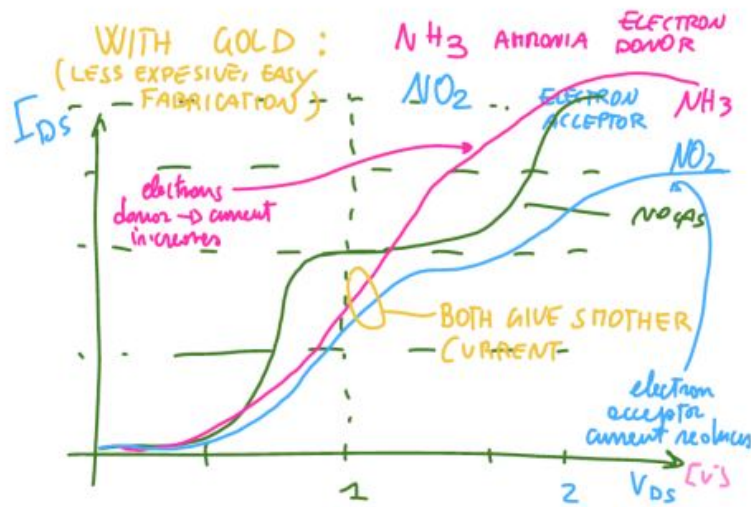 WITH GOLD :
(LESS EXPESIVE, EASY
FABRICATION)
NH3 AMMONIA ELECTRON
DONOR
NO2 ELECTRON
ACCEPTOR
IDS
NH3
NO2
NO GAS
electrons
donor → current
increases
BOTH GIVE SMOTHER
CURRENT
electron
acceptor
current reduces
1
2
VDS [V]